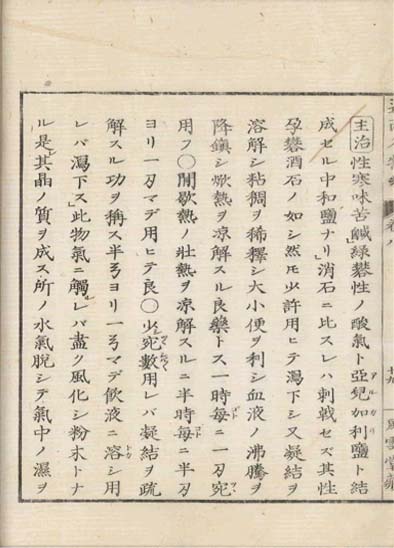 主治 性寒味苦鹹緑礬性ノ酸氣ト亞兒加利鹽ト結
成セル中和鹽ナリ」消石ニ比スレハ刺戟セズ其性
孕礬酒石ノ如シ然モ少許用ヒテ瀉下シ又凝結ヲ
溶解シ粘稠ヲ稀釋シ大小便ヲ利シ血液ノ沸騰ヲ
降鎮シ焮熱ヲ凉解スル良藥トス一時毎ニ一刄宛
用フ〇間歇熱ノ壯熱ヲ凉解スルニ半時毎ニ半刄
ヨリ一刄マデ用ヒテ良〇少宛數用レバ凝結ヲ疏
解スル功ヲ稱ス半ヨリ一マデ飲液ニ溶シ用
レバ瀉下ス」此物氣ニ觸レバ盡ク風化シ粉末トナ
ル是其晶ノ質ヲ成ス所ノ水氣脱シテ氣中ノ濕ヲ